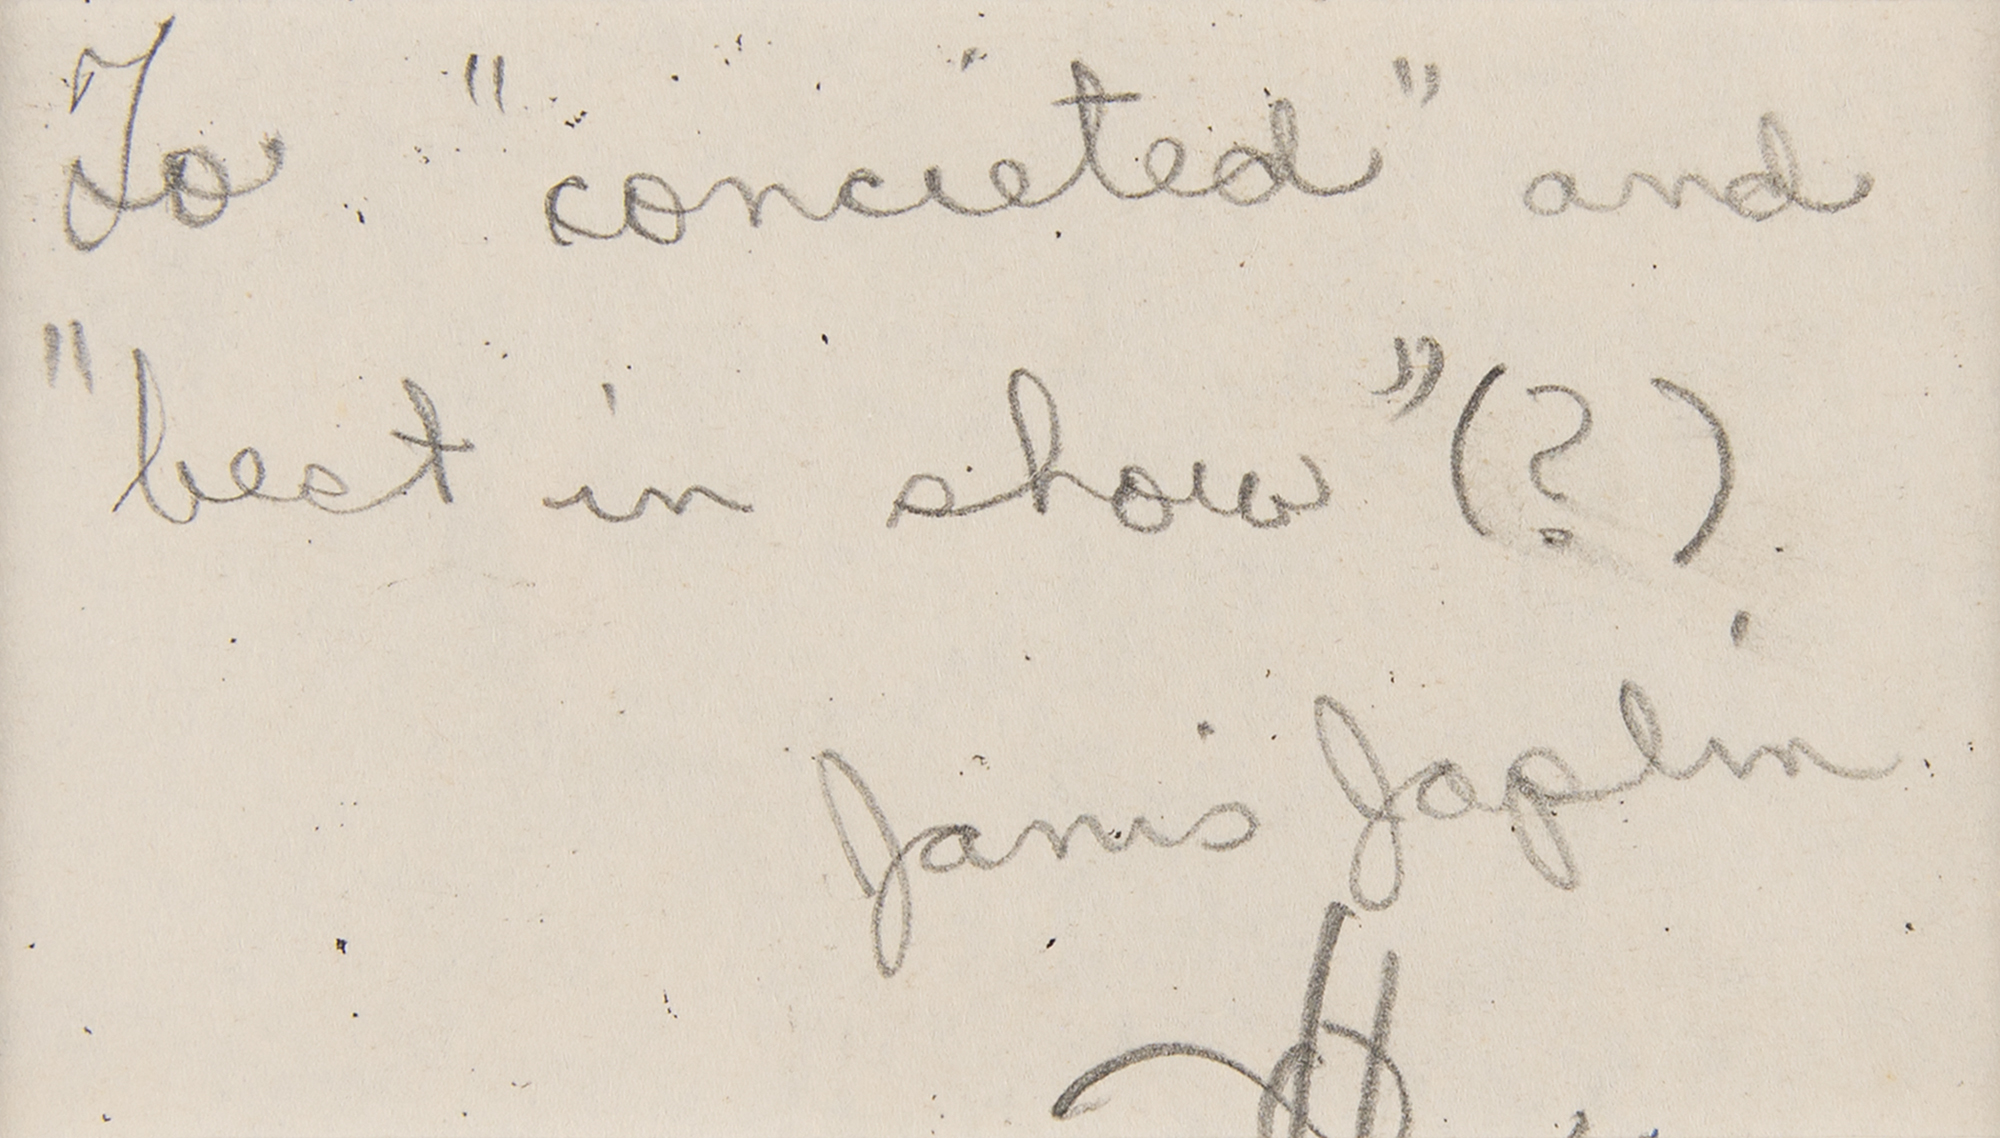 To "concieted" and
"best in show" (?)
Janis Joplin